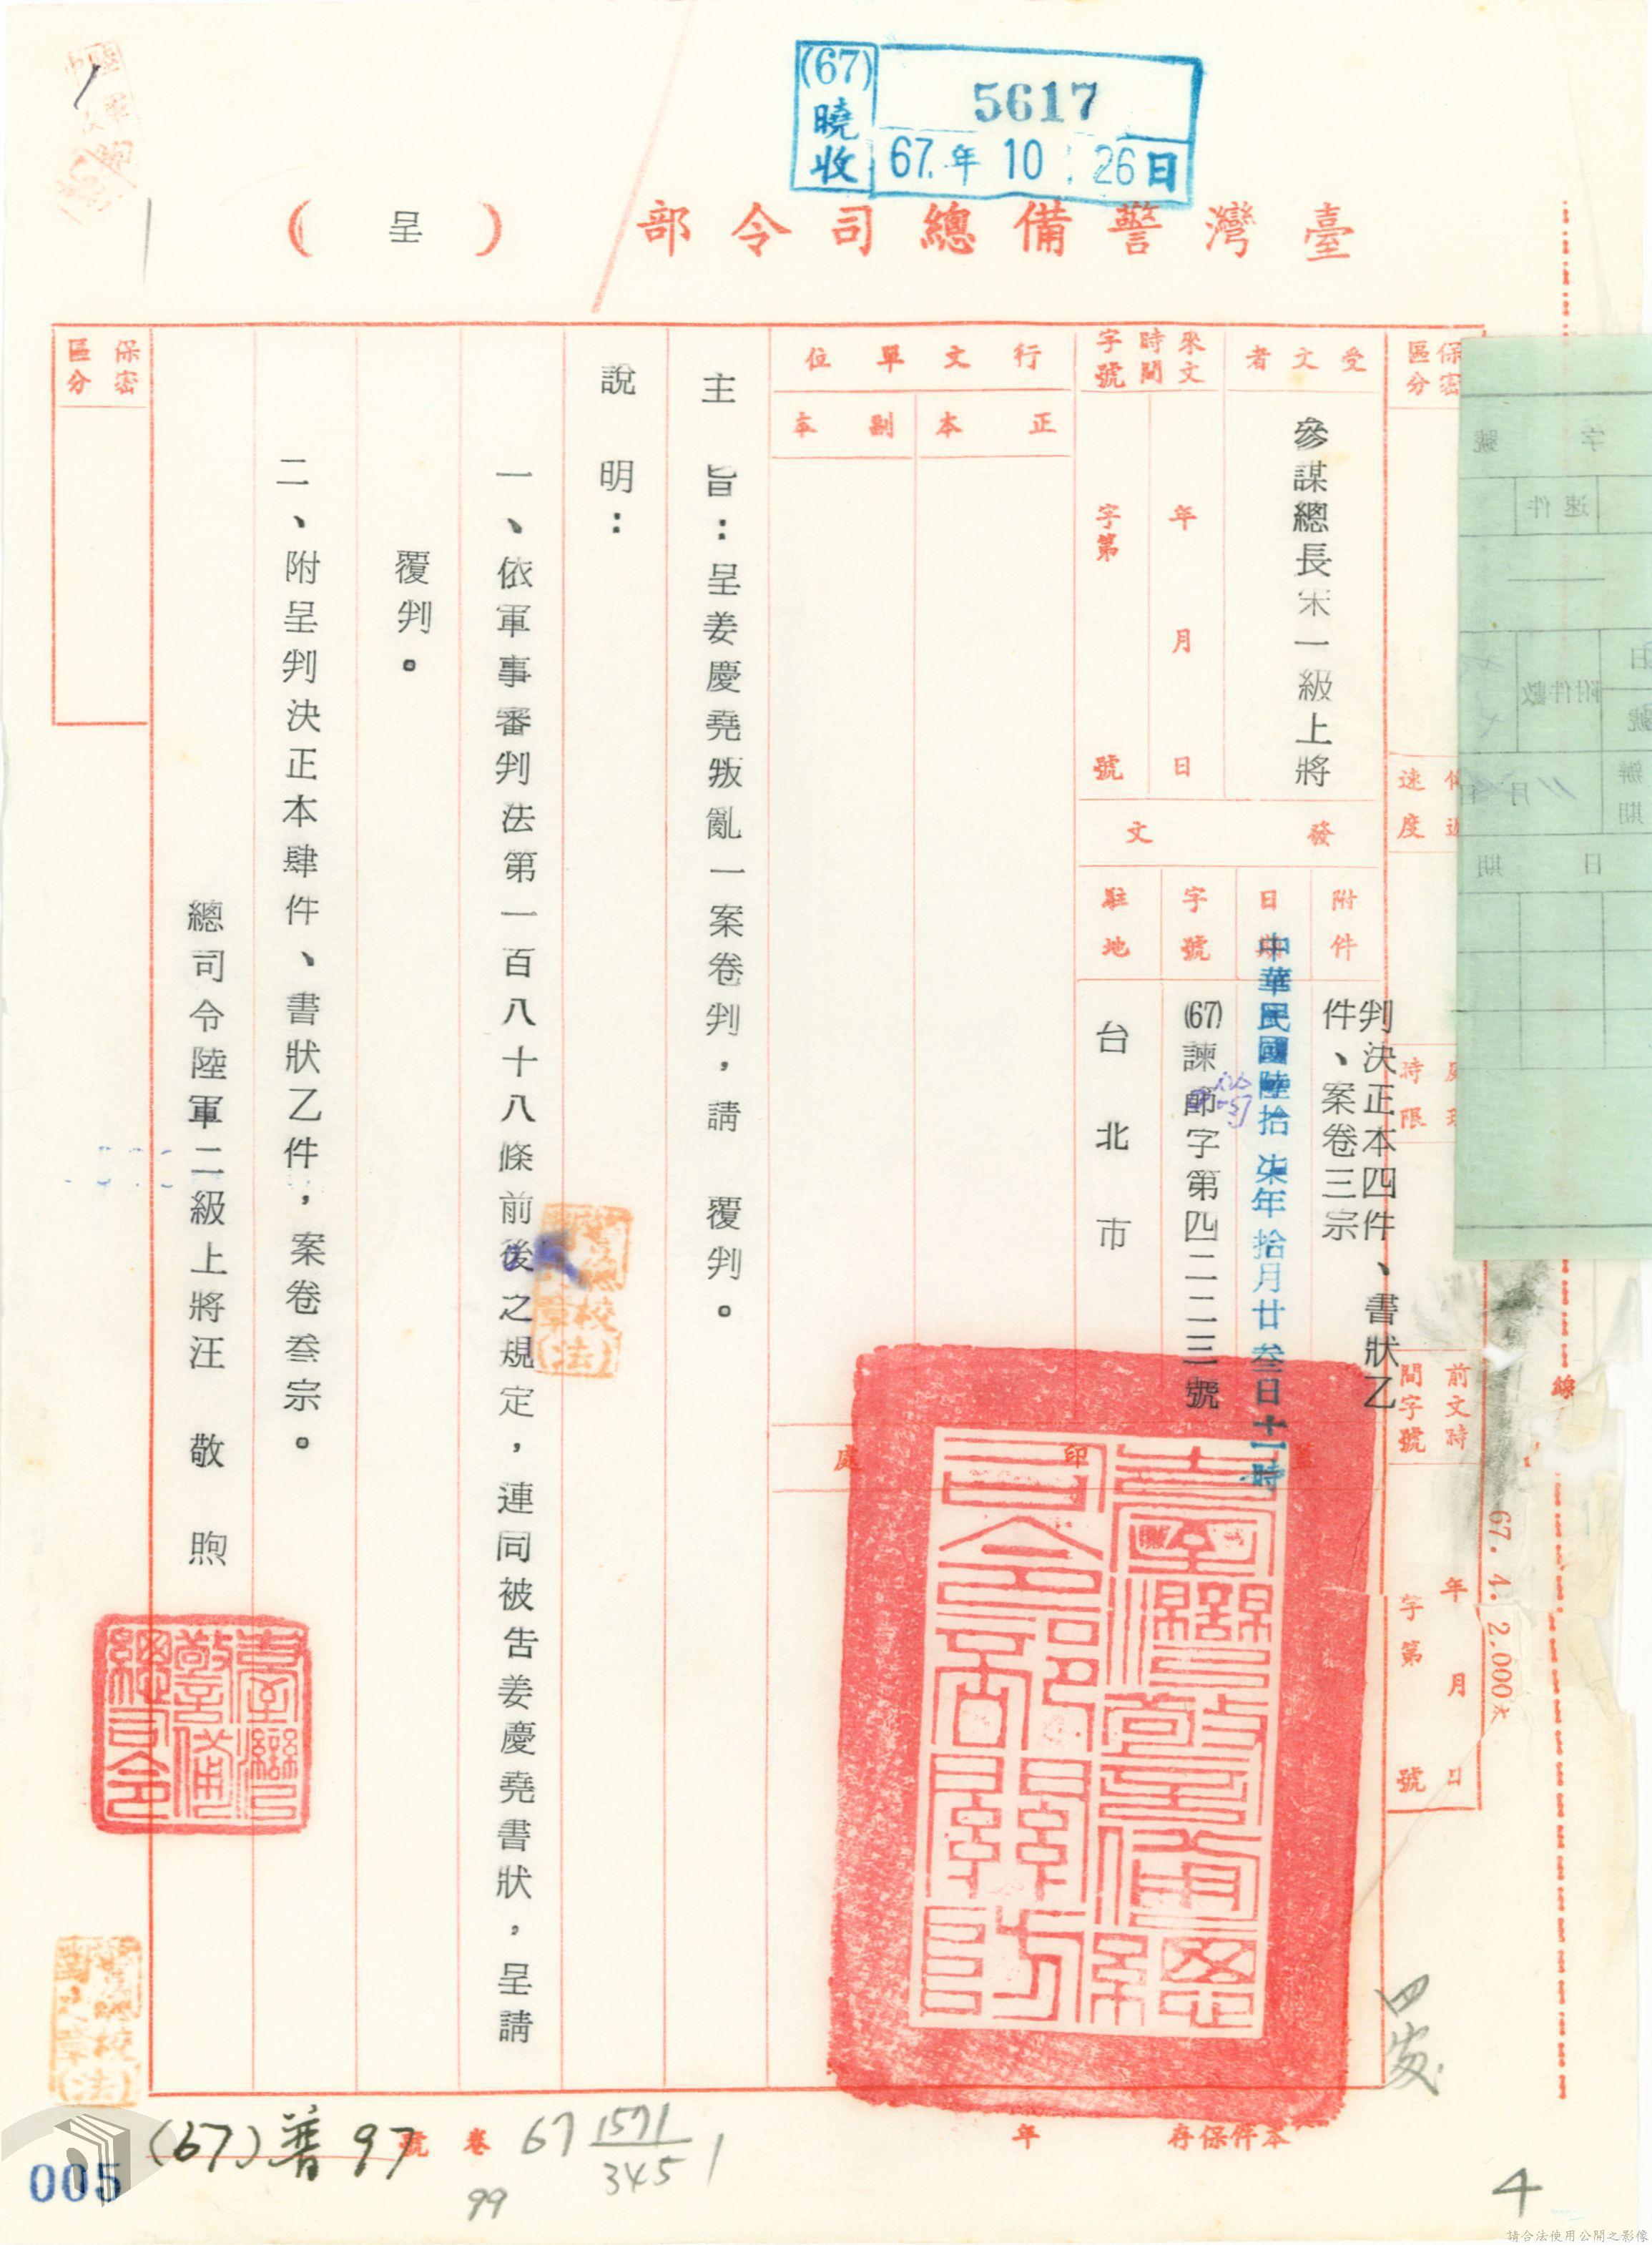 (67)
曉
收
5617
67.年 10 26日
臺灣警備總司令部
（呈）
保密
區分
受文者
參謀總長宋一級上將
來文
時間
字號
年 月 日
字第 號
行文單位
正本
副本
傳遞
速度
處理
時限
前文時
間字號
年 月 日
字第 號
發文
附件
判決正本四件、書狀乙
件、案卷三宗
日期
中華民國陸拾柒年拾月廿叁日十一時
字號
(67)諫師字第四二二三號
駐地
台北市
印
處
主旨：呈姜慶堯叛亂一案卷判，請 覆判。
說明：
一、依軍事審判法第一百八十八條前後之規定，連同被告姜慶堯書狀，呈請
覆判。
二、附呈判決正本肆件、書狀乙件，案卷叁宗。
總司令陸軍二級上將汪 敬 煦
臺灣警備總司令
保密
區分
線
67. 4. 2.000本
字號
速件
附件數
月
日期
本件保存 年
卷 號
(67)普97
67 1571
345
1
99
005
4
請合法使用公開之影像